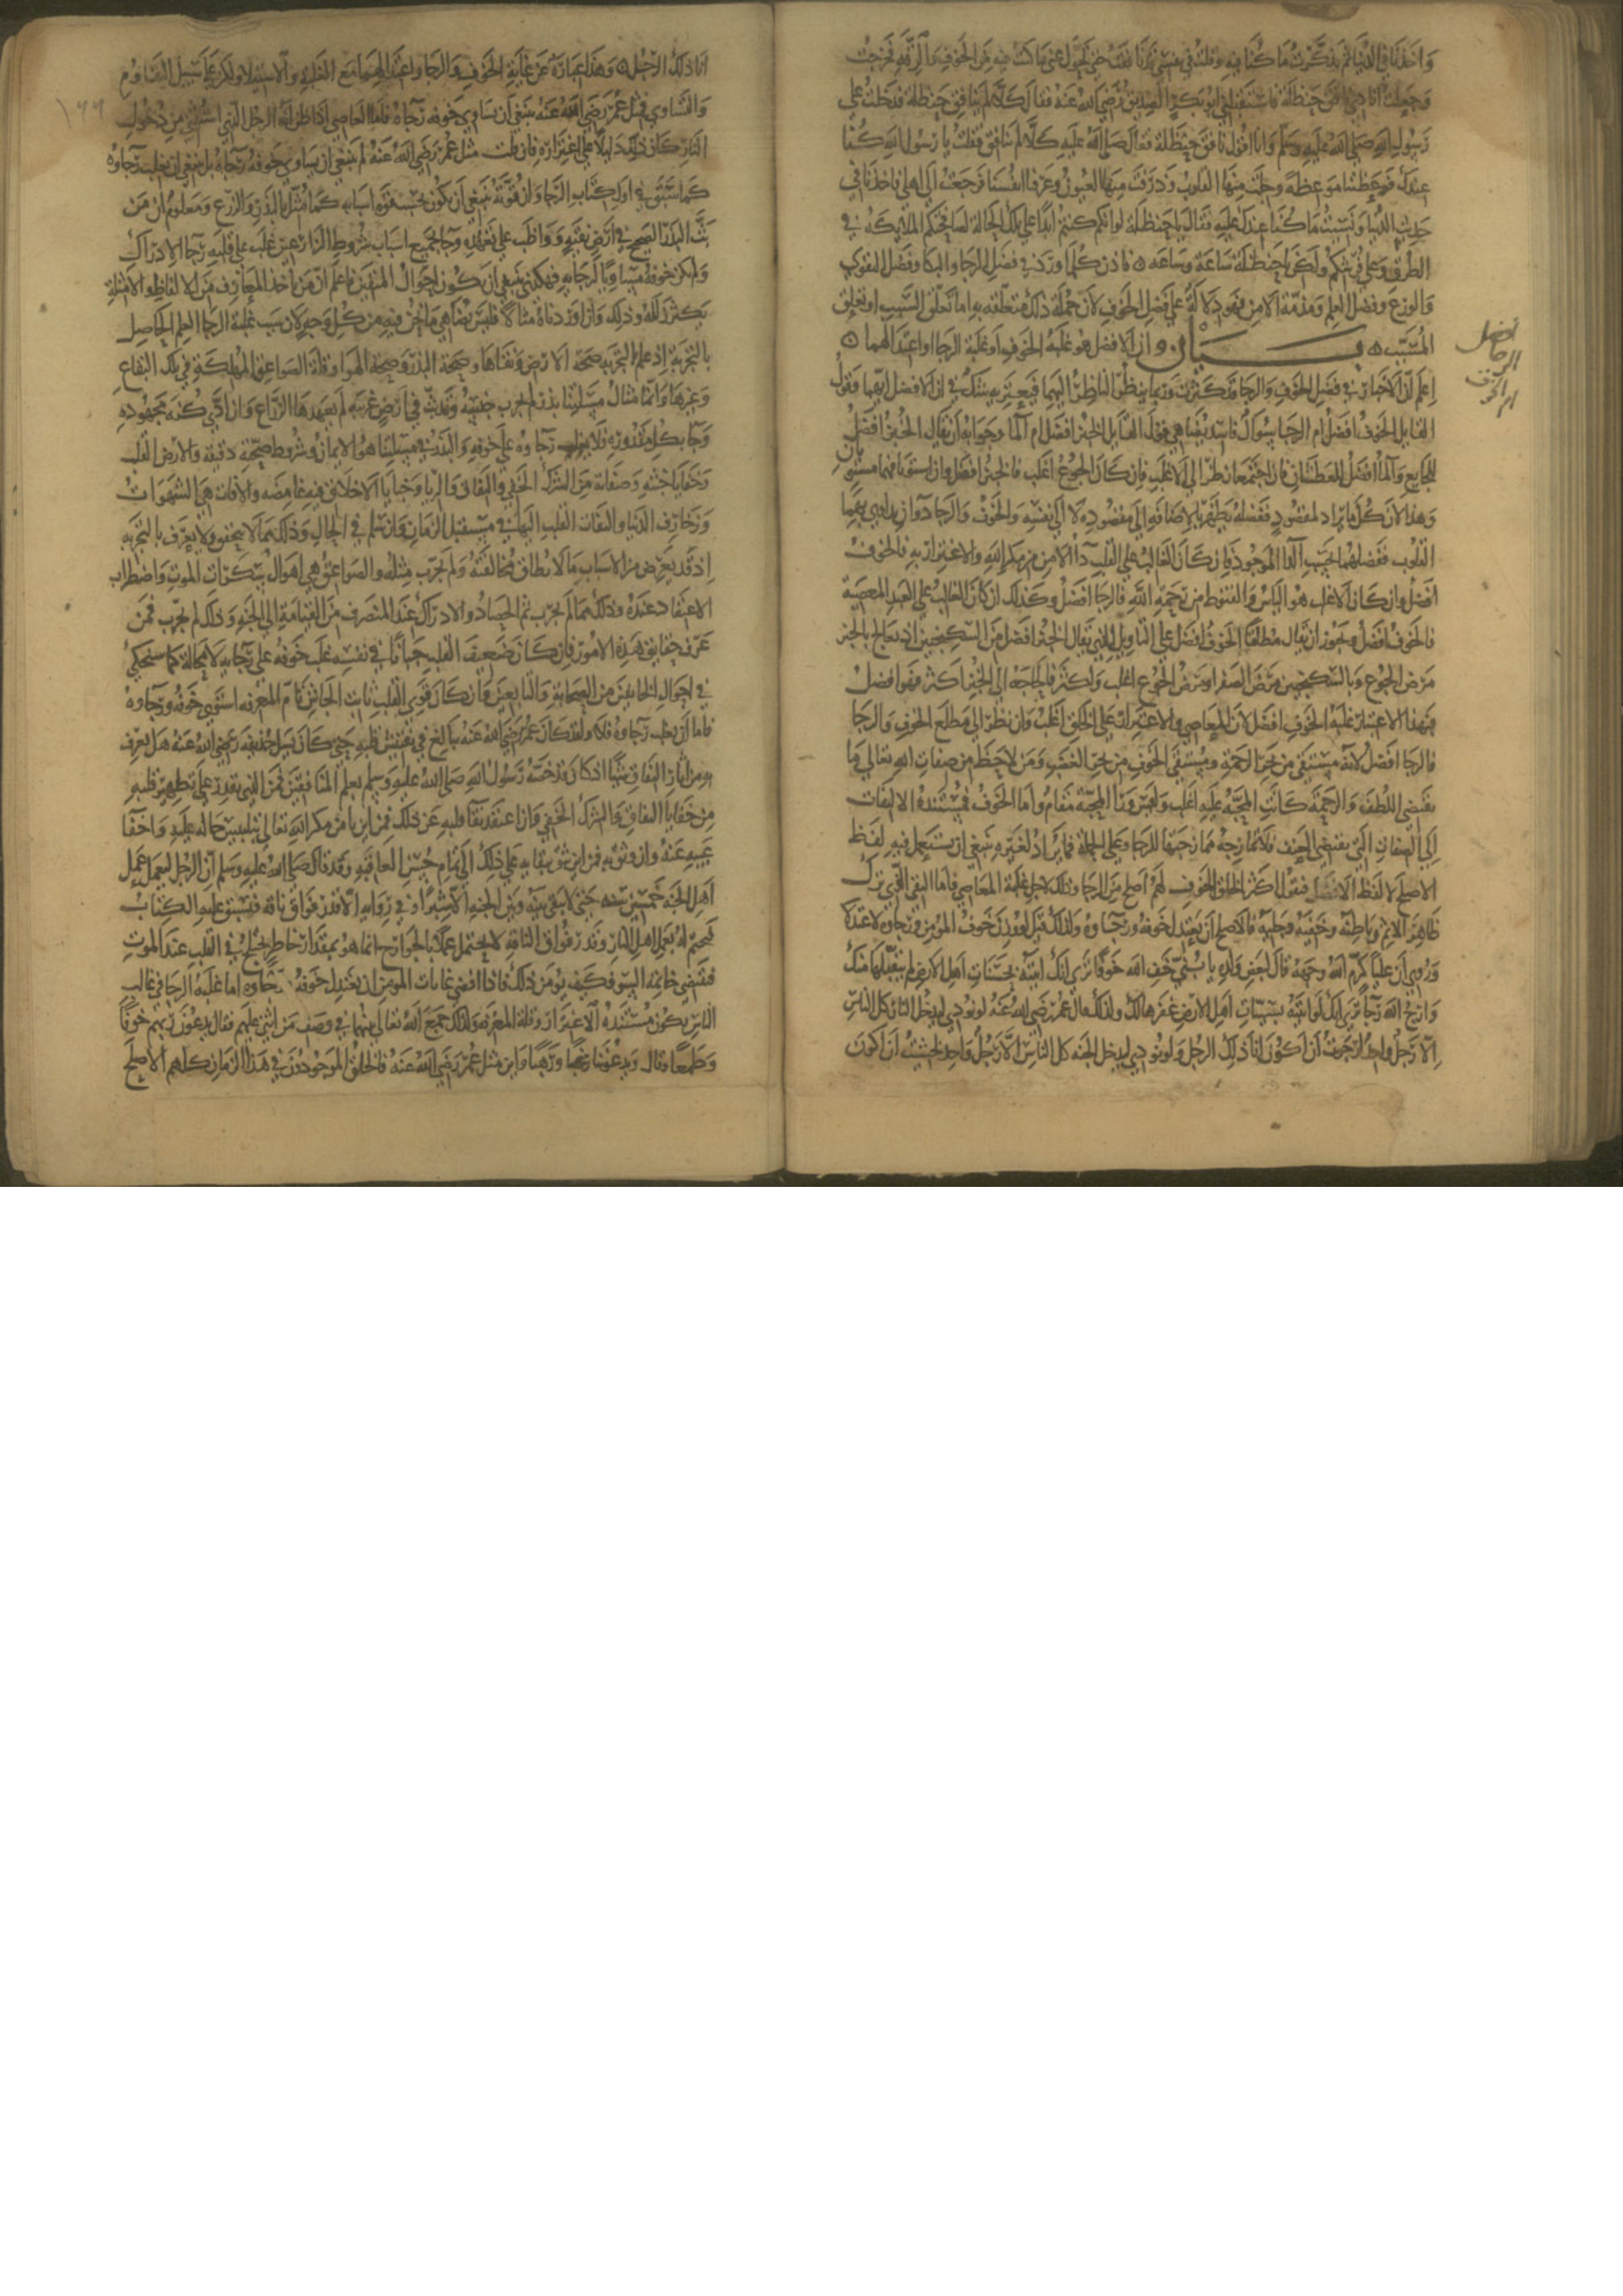 واخذنا في الدنيا ثم تذكرت ما كنا فيه وقلت في نفسي قد نافقت حتى تحول عني ما كنت فيه من الخوف والرقة فخرجت
وجعلت انادي نافق حنظلة فاستقبلني ابو بكر الصديق رضي الله عنه فقال كلا لم ينافق حنظلة فدخلت على
رسول الله صلى الله عليه وسلم وانا اقول نافق حنظلة فقال صلى الله عليه كلا لم ينافق فقلت يا رسول الله كنا
عندك فوعظتنا موعظة وجلت منها القلوب وذرفت منها العيون وعرفنا انفسنا فرجعت الى اهلي فاخذنا في
حديث الدنيا ونسيت ما كنا عندك عليه فقال يا حنظلة لو انكم كنتم ابدا على تلك الحالة لصافحتكم الملايكة في
الطرق وعلى فرشكم ولكن يا حنظلة ساعة وساعة ه فاذن كلما ورد في فضل الرجا والبكا وفضل التقوى
والورع وفضل العلم ومذمة الامن فهو دلالة على فضل الخوف لان جملة ذلك متعلقة به اما تعلق السبب او تعلق
المسبب ه بيان ان الافضل هو غلبة الخوف او غلبة الرجا او اعتدالهما ه
افضل
الرجا
ام الخوف
اعلم ان الاخبار في فضل الخوف والرجا قد كثرت وربما ينظر الناظر اليهما فيعتريه شك في ان الافضل ايهما وقول
القايل الخوف افضل ام الرجا سوال فاسد يضاهي قول القايل الخبز افضل ام الما وجوابه ان يقال الخبز افضل
للجايع والما افضل للعطشان فان اجتمعا نظر الى الاغلب فان كان الجوع اغلب فالخبز افضل وان استويا فهما مستويان
وهذا لان كل ما يراد لمقصود ففضله يظهر بالاضافة الى مقصوده لا الى نفسه والخوف والرجا دوآن يداوى بهما
القلوب ففضلهما بحسب الدا الموجود فان كان الغالب على القلب دا الامن من مكر الله والاغترار به فالخوف
افضل وان كان الاغلب هو الياس والقنوط من رحمة الله فالرجا افضل وكذلك ان كان الغالب على العبد المعصية
فالخوف افضل ويجوز ان يقال مطلقا الخوف افضل على التاويل الذي يقال الخبز افضل من السكنجبين اذ يعالج بالخبز
مرض الجوع وبالسكنجبين مرض الصفرا ومرض الجوع اغلب واكثر فالحاجة الى الخبز اكثر فهو افضل
فبهذا الاعتبار غلبة الخوف افضل لان المعاصي والاغترار على الخلق اغلب وان نظر الى مطلع الخوف والرجا
فالرجا افضل لانه مستقى من بحر الرحمة ومستقى الخوف من بحر الغضب ومن لاحظ من صفات الله تعالى ما
يقتضي اللطف والرحمة كانت المحبة عليه اغلب وليس ورا المحبة مقام واما الخوف فمستنده الالتفات
الى الصفات التي يقتضي العنف فلا تمازجه ممازجتها للرجا وعلى الجملة فما يراد لغيره ينبغي ان يستعمل فيه لفظ
الاصلح لا لفظ الافضل فنقول اكثر الخلق الخوف لهم اصلح من الرجا وذلك لاجل غلبة المعاصي فاما التقي الذي ترك
ظاهر الاثم وباطنه وخفيه وجليه فالاصلح ان يعتدل خوفه ورجاوه ولذلك قيل لو وزن خوف المومن ورجاوه لاعتدلا
وروي ان عليا كرم الله وجهه قال لبعض ولده يا بني خف الله خوفا ترى انك لو اتيته بحسنات اهل الارض لم يتقبلها منك
وارج الله رجا ترى انك لو اتيته بسيات اهل الارض غفرها لك ولذلك قال عمر رضي الله عنه لو نودي ليدخل النار كل الناس
الا رجل واحد لرجوت ان اكون انا ذلك الرجل ولو نودي ليدخل الجنة كل الناس الا رجل واحد لخشيت ان اكون
١٩٩
انا ذلك الرجل ه وهذا عبارة عن غاية الخوف والرجا واعتدالهما مع الغلبة والاستيلا ولكن على سبيل التقاوم
والتساوي فمثل عمر رضي الله عنه ينبغي ان يساوي خوفه رجاه فاما العاصي اذا ظن انه الرجل الذي استثني من دخول
النار كان ذلك دليلا على اغتراره فان قلت مثل عمر رضي الله عنه لم ينبغي ان يساوي خوفه رجاه بل ينبغي ان يغلب رجاوه
كما سبق في اول كتاب الرجا وان قوته ينبغي ان تكون بحسب قوة اسبابه كما مثل بالبذر والزرع ومعلوم ان من
بث البذر الصحيح في ارض نقية وواظب على تعهده وجا بجميع اسباب شروط الزارعين غلب على قلبه رجا الادراك
ولم يكن خوفه مساويا لرجايه فهكذى ينبغي ان يكون احوال المتقين فاعلم ان من ياخذ المعارف من الالفاظ والامثلة
يكثر زلله وذلك وان اوردناه مثالا فليس يضاهي ما نحن فيه من كل وجه لان سبب غلبة الرجا العلم الحاصل
بالتجربة اذ علم بالتجربة صحة الارض ونقاها وصحة البذر وصحة الهوا وقلة الصواعق المهلكة في تلك البقاع
وغيرها وانما مثال مسلتنا بذر لم يجرب جنسه وقد بث في ارض غريبة لم يعهدها الزارع وان ادى كنه مجهوده
وجا بكل مقدوره فلا يغلب رجاوه على خوفه والبذر في مسلتنا هو الايمان وشروط صحته دقيقة والارض القلب
وخفايا خبثه وصفاته من الشرك الخفي والنفاق والريا وخبايا الاخلاق فيه غامضه والافات هي الشهوات
وزخارف الدنيا والتفات القلب اليها في مستقبل الزمان وان سلم في الحال وذلك مما لا يتحقق ولا يعرف بالتجربة
اذ قد يعرض من الاسباب ما لا يطاق مخالفته ولم يجرب مثله والصواعق هي اهوال سكرات الموت واضطراب
الاعتقاد عنده وذلك مما لم يجرب ثم الحصاد والادراك عند المنصرف من القيامة الى الجنة وذلك لم يجرب فمن
عرف حقايق هذه الامور فان كان ضعيف القلب جبانا في نفسه غلب خوفه على رجايه لا محالة كما سنحكي
في احوال الخايفين من الصحابة والتابعين وان كان قوي القلب ثابت الجاش تام المعرفة استوى خوفه ورجاوه
فاما ان يغلب رجاوه فلا ولقد كان عمر رضي الله عنه يبالغ في تفتيش قلبه حتى كان يسل حذيفة رضي الله عنه هل يعرف
به من اثار النفاق شيا اذ كان قد خصه رسول الله صلى الله عليه وسلم بعلم المنافقين فمن الذي يقدر على تطهير قلبه
من خفايا النفاق والشرك الخفي وان اعتقد نقا قلبه عن ذلك فمن اين يامن مكر الله تعالى بتلبيس حاله عليه واخفا
عيبه عنه وان وثق به فمن اين يثق ببقايه على ذلك الى تمام حسن العاقبة وقد قال صلى الله عليه وسلم ان الرجل ليعمل عمل
اهل الجنة خمسين سنه حتى لا يبقى بينه وبين الجنه الا شبرا وفي روايه الا قدر فواق ناقه فيسبق عليه الكتاب
فيختم له بعمل اهل النار وقدر فواق الناقه لا يحتمل عملا بالجوارح انما هو بمقدار خاطر يختلج في القلب عند الموت
فتقتضي خاتمة السو فكيف يومن ذلك فاذا اقصى غايات المومن ان يعتدل خوفه ورجاوه اما غلبة الرجا في غالب
الناس يكون مستنده الاغترار وقلة المعرفه ولذلك جمع الله تعالى بينهما في وصف من اثنى عليهم فقال يدعون ربهم خوفا
وطمعا وقال ويدعوننا رغبا ورهبا واين مثل عمر رضي الله عنه فالخلق الموجودون في هذا الزمان كلهم الاصلح